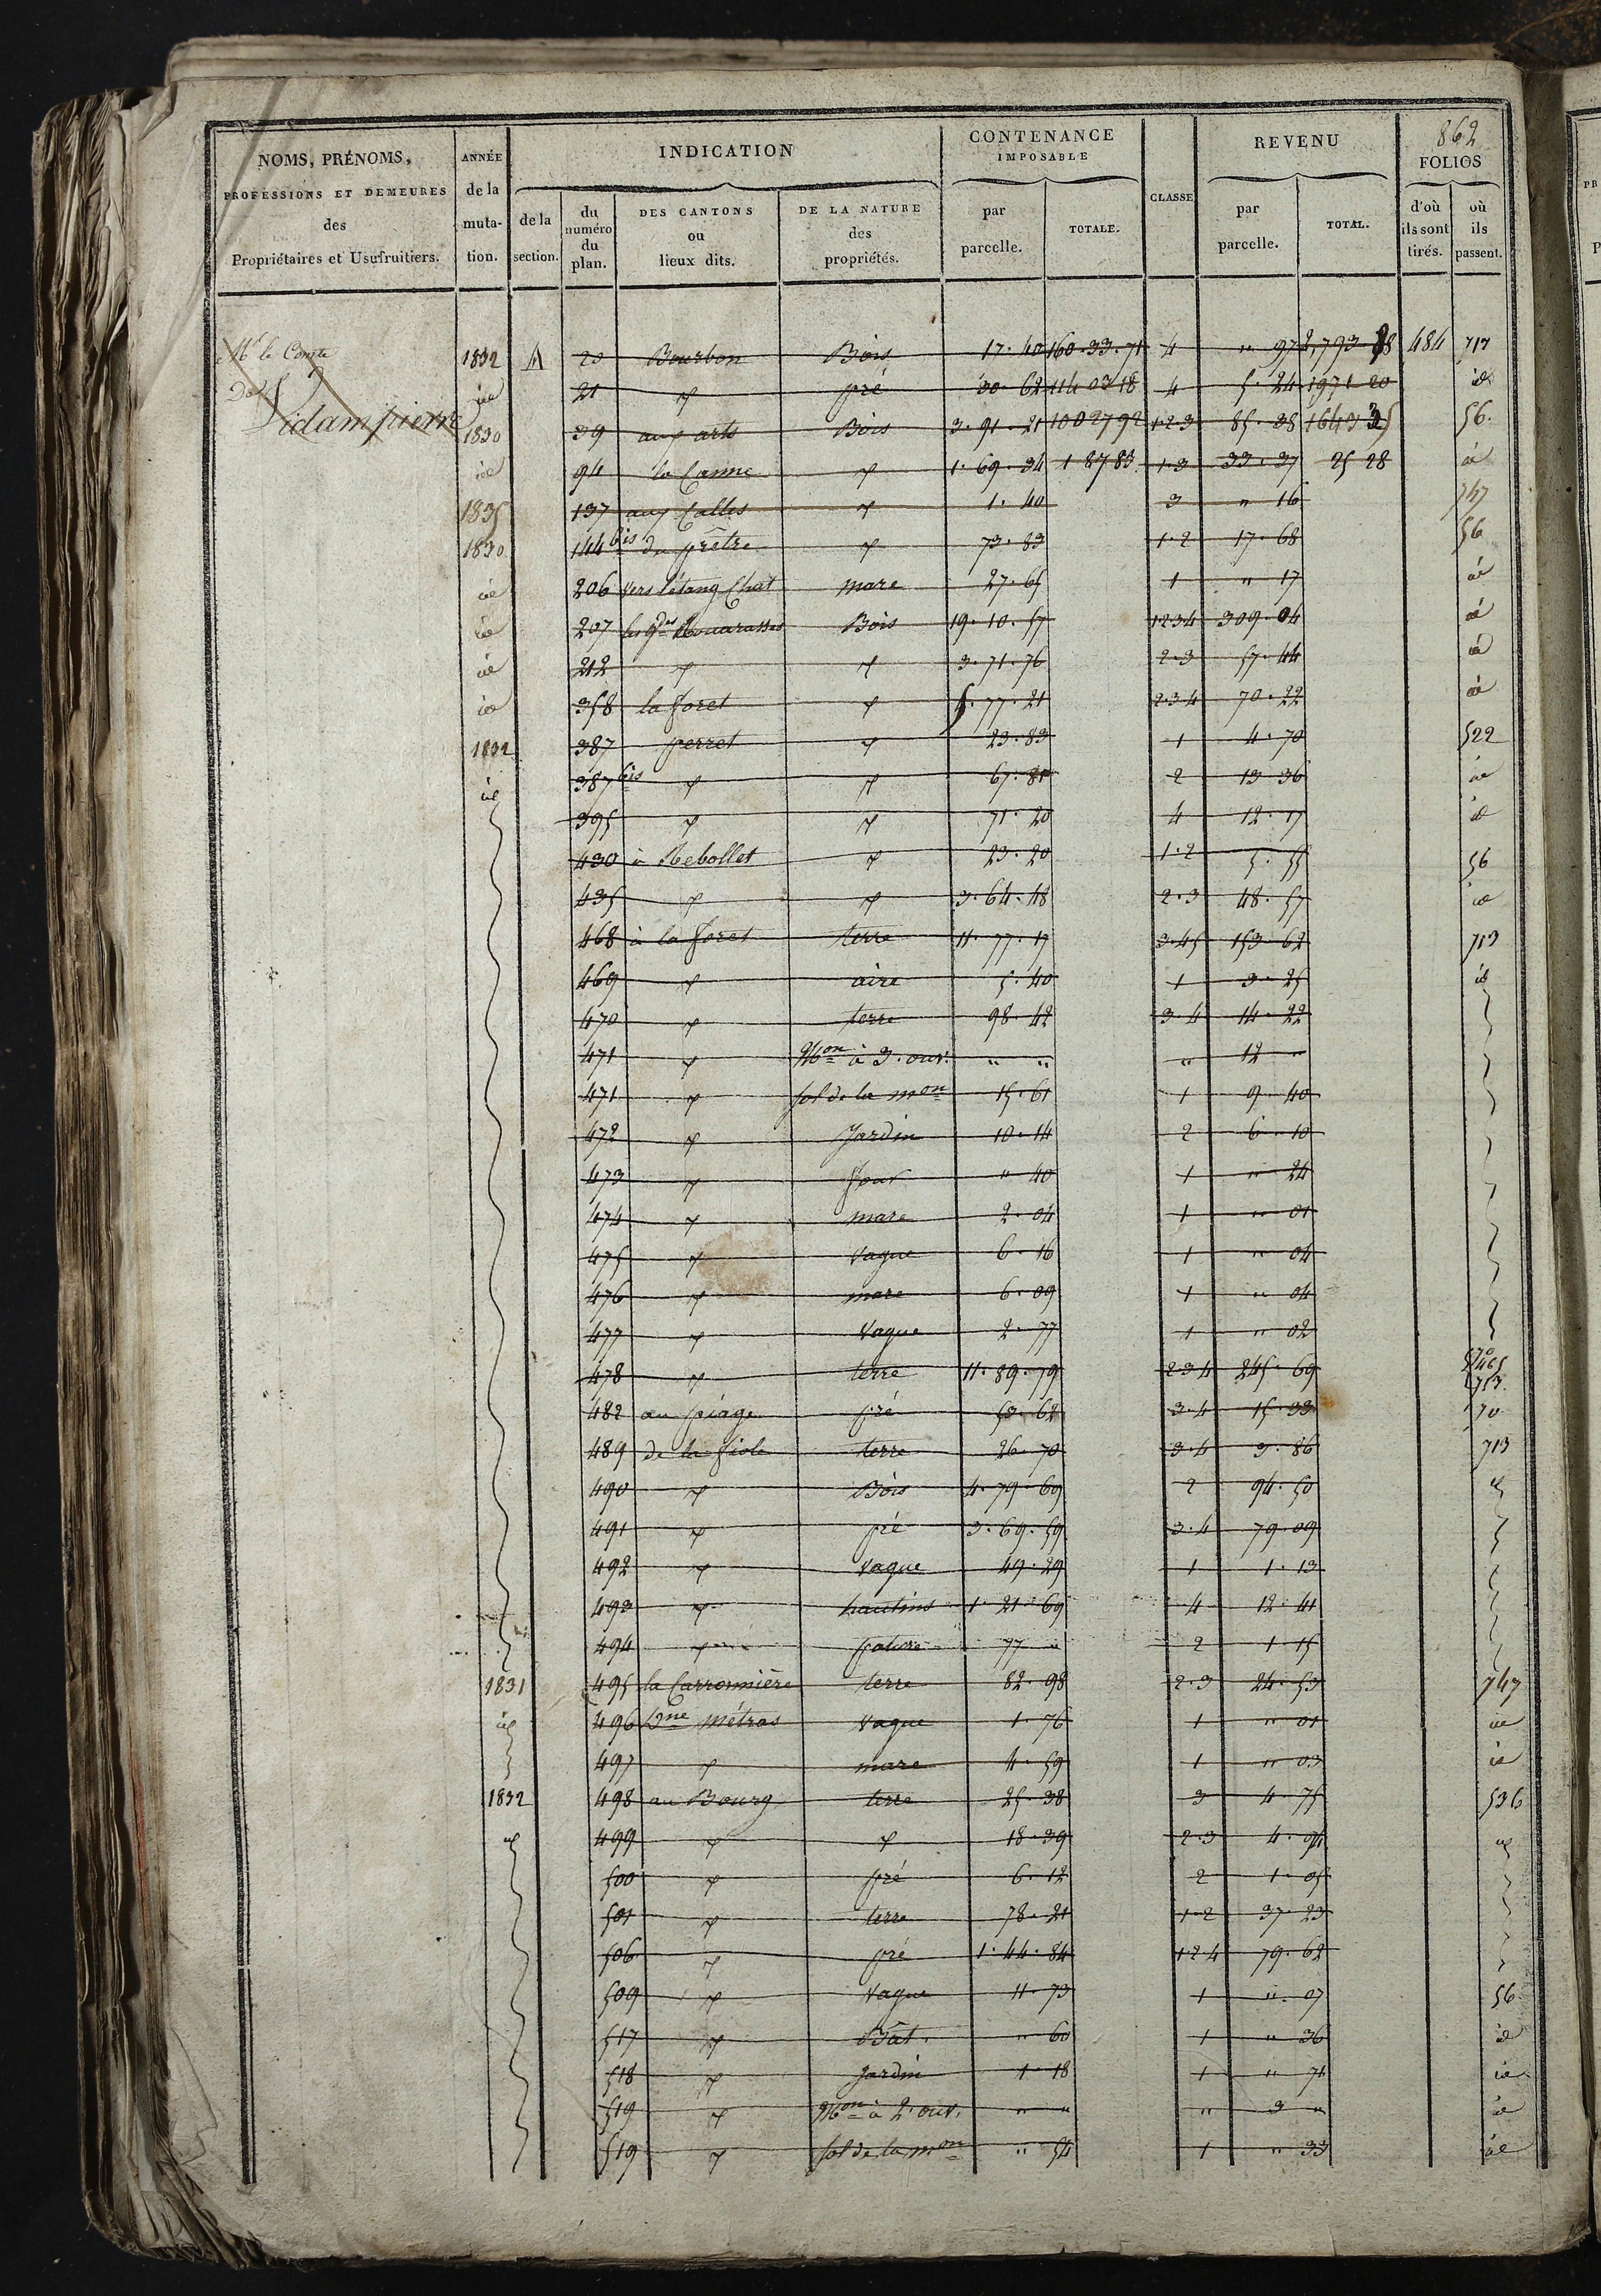 862
NOMS, PRÉNOMS, PROFESSIONS ET DEMEURES des Propriétaires et Usufruitiers.
ANNÉE de la muta- tion.
INDICATION
de la section.
du numéro du plan.
DES CANTONS ou lieux dits.
DE LA NATURE des propriétés.
CONTENANCE IMPOSABLE
par parcelle.
TOTALE.
CLASSE
REVENU
par parcelle.
TOTAL.
FOLIOS
d'où ils sont tirés.
où ils passent.
Mr le Comte
De
Vidampierre
1832 A 20 Bourbon Bois 17.40 160.33.71 4 " 97 2,793 28 484 717
id 21 id pré 30.62 114 03 18 4 5.24 1971 20 id
1830 39 aux arts Bois 3.91.21 1002792 1.2.3 85.38 1643 35 56.
id 94 la Canne id 1.69.34 1 87 83 1.3 33.37 25 28 id
1835 137 aux Calles id 1.40 3 " 16 747
1830 144 bis du prêtre id 73.83 1.2 17.68 56
id 206 vers l'étang Chat mare 27.65 1 " 17 id
id 207 les gdes Bois 19.10.57 1234 309.04 id
id 212 id id 3.71.76 2.3 57.44 id
id 358 la foret id 5.77.21 2.3 4 70.22 id
1832 387 perret id 23.83 1 4.70 522
id 387 bis id id 67.81 2 13 36 id
395 id id 71.20 4 12.17 id
430 à Rebollet id 23.20 1.2 5.55 56
435 id id 3.64.48 2.3 48.57 id
468 à la foret terre 11.77.17 3.45 153.62 713
469 id aire 5.40 1 3.25 id
470 id terre 98.42 3.4 14.22
471 id Mon à 3. ouv. " " " 12 "
471 id sol de la mon 15.61 1 9.40
472 id Jardin 10.14 2 6.10
473 id four " 40 1 " 24
474 id mare 2.04 1 " 01
475 id Vague 6.16 1 " 04
476 id mare 6.09 1 " 04
477 id Vague 2.77 1 " 02
478 id terre 11.89.79 2.3 4 245.69 70 465 713
482 au piage pré 53.62 3.4 15.33 70
489 de la fiole terre 26.70 3.4 3.86 713
490 id Bois 4.79.69 2 94.50 id
491 id pré 3.69.59 3.4 79.09
492 id Vague 49.29 1 1.13
493 id hautins 1.21.69 4 12.41
494 id pature 77 " 2 1.15
1831 495 la Carronnière terre 82.98 2.3 24.53 747
id 496 Bne Métras Vague 1.76 1 " 01 id
497 id mare 4.59 1 " 03 id
1832 498 au Bourg terre 25.38 3 4.75 536
id 499 id id 18.39 2.3 4.94 id
500 id pré 6.12 2 1.05
501 id terre 78.21 1.2 37.23
506 id pré 1.44.84 1.2 4 79.62
509 id Vague 11.73 1 " 07 56
517 id Bât. " 60 1 " 36 id
518 id Jardin 1.18 1 " 71 id
519 id Mon à 2. ouv. " " " 3 " id
519 id sol de la mon " 54 1 " 33 id